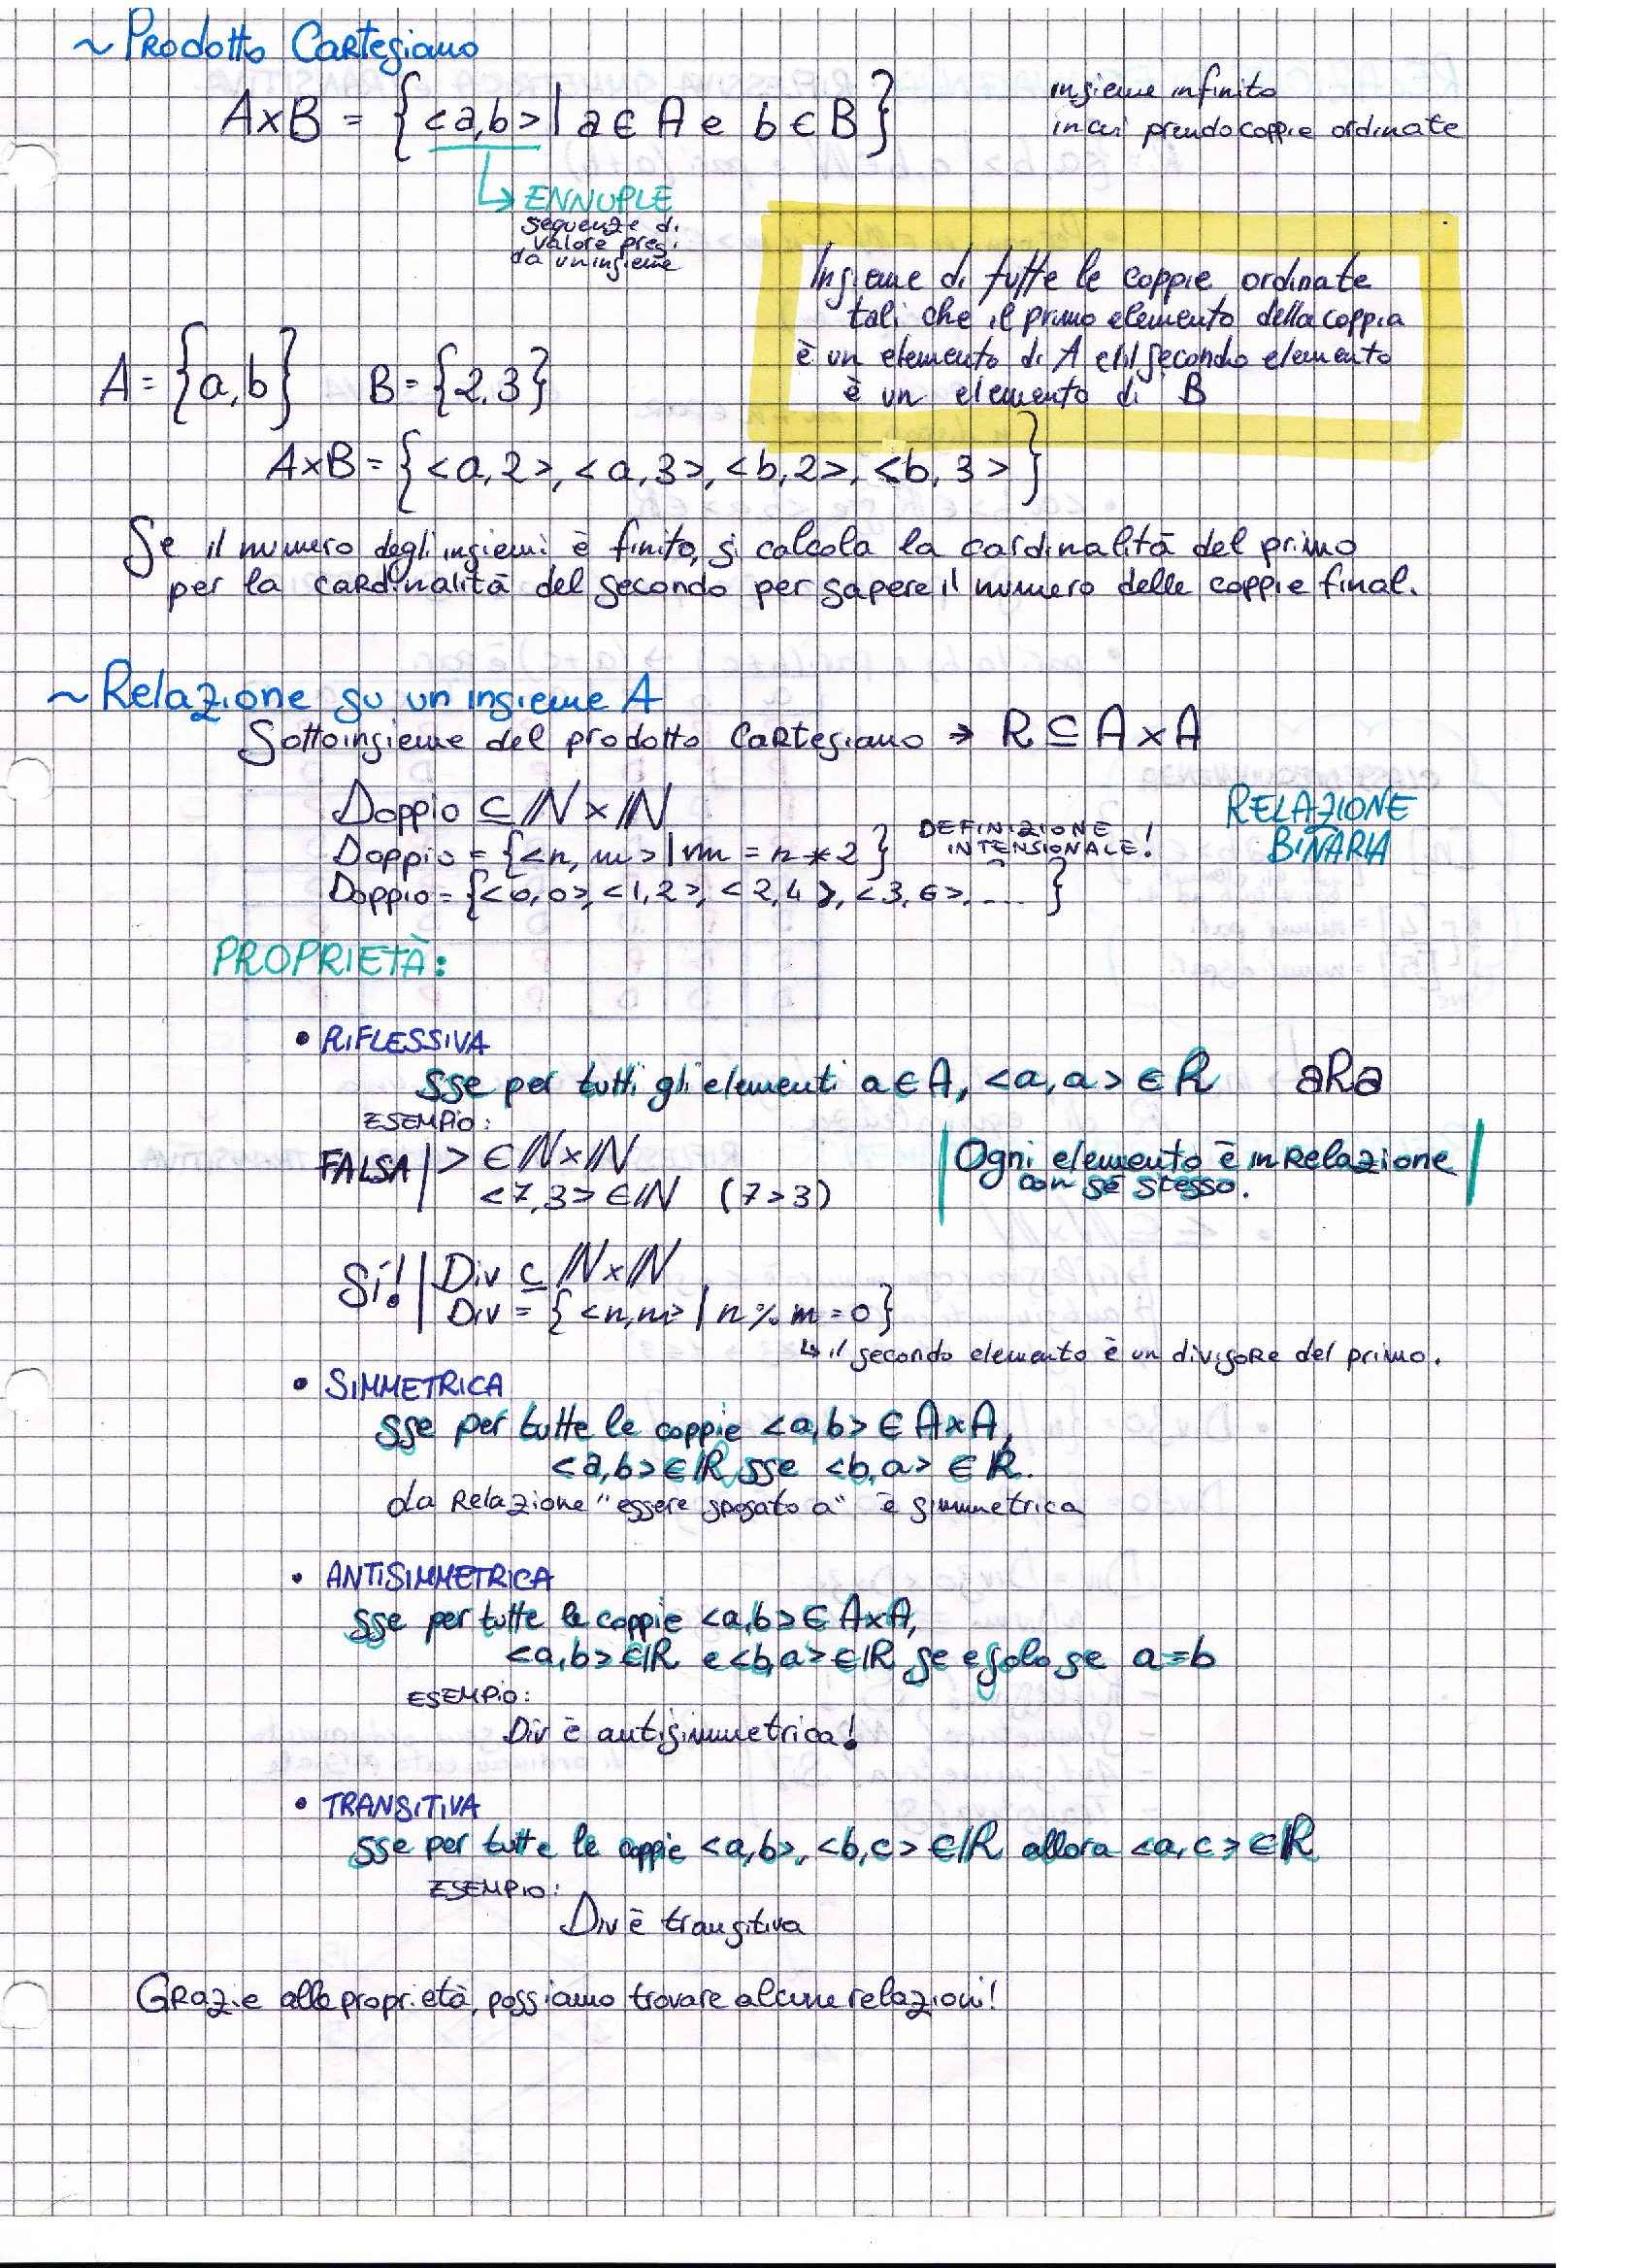 ~ Prodotto Cartesiano
A×B = {<a,b> | a∈A e b∈B}
insieme infinito
in cui prendo coppie ordinate
↳ ENNUPLE
sequenze di
valore presi
da un insieme
Insieme di tutte le coppie ordinate
tali che il primo elemento della coppia
è un elemento di A e il secondo elemento
è un elemento di B
A = {a,b} B = {2,3}
A×B = {<a,2>, <a,3>, <b,2>, <b,3>}
Se il numero degli insiemi è finito, si calcola la cardinalità del primo
per la cardinalità del secondo per sapere il numero delle coppie finali.
~ Relazione su un insieme A
Sottoinsieme del prodotto Cartesiano → R ⊆ A × A
Doppio ⊆ ℕ × ℕ
Doppio = {<n, m> | m = n * 2} DEFINIZIONE
INTENSIONALE!
RELAZIONE
BINARIA
Doppio = {<0,0>, <1,2>, <2,4>, <3,6>, .... }
PROPRIETÀ:
• RIFLESSIVA
sse per tutti gli elementi a∈A, <a,a> ∈ R aRa
ESEMPIO:
FALSA | > ∈ ℕ×ℕ
<7,3> ∈ ℕ (7>3)
Ogni elemento è in Relazione
con sé stesso.
Sí! | Div ⊆ ℕ×ℕ
Div = {<n,m> | n % m = 0}
↳ il secondo elemento è un divisore del primo.
• SIMMETRICA
sse per tutte le coppie <a,b> ∈ A×A,
<a,b> ∈ R sse <b,a> ∈ R.
La Relazione "essere sposato a" è simmetrica
• ANTISIMMETRICA
sse per tutte le coppie <a,b> ∈ A×A,
<a,b> ∈ R e <b,a> ∈ R se e solo se a=b
ESEMPIO:
Div è antisimmetrica!
• TRANSITIVA
sse per tutte le coppie <a,b>, <b,c> ∈ R allora <a,c> ∈ R
ESEMPIO:
Div è transitiva
Grazie alle proprietà, possiamo trovare alcune relazioni!